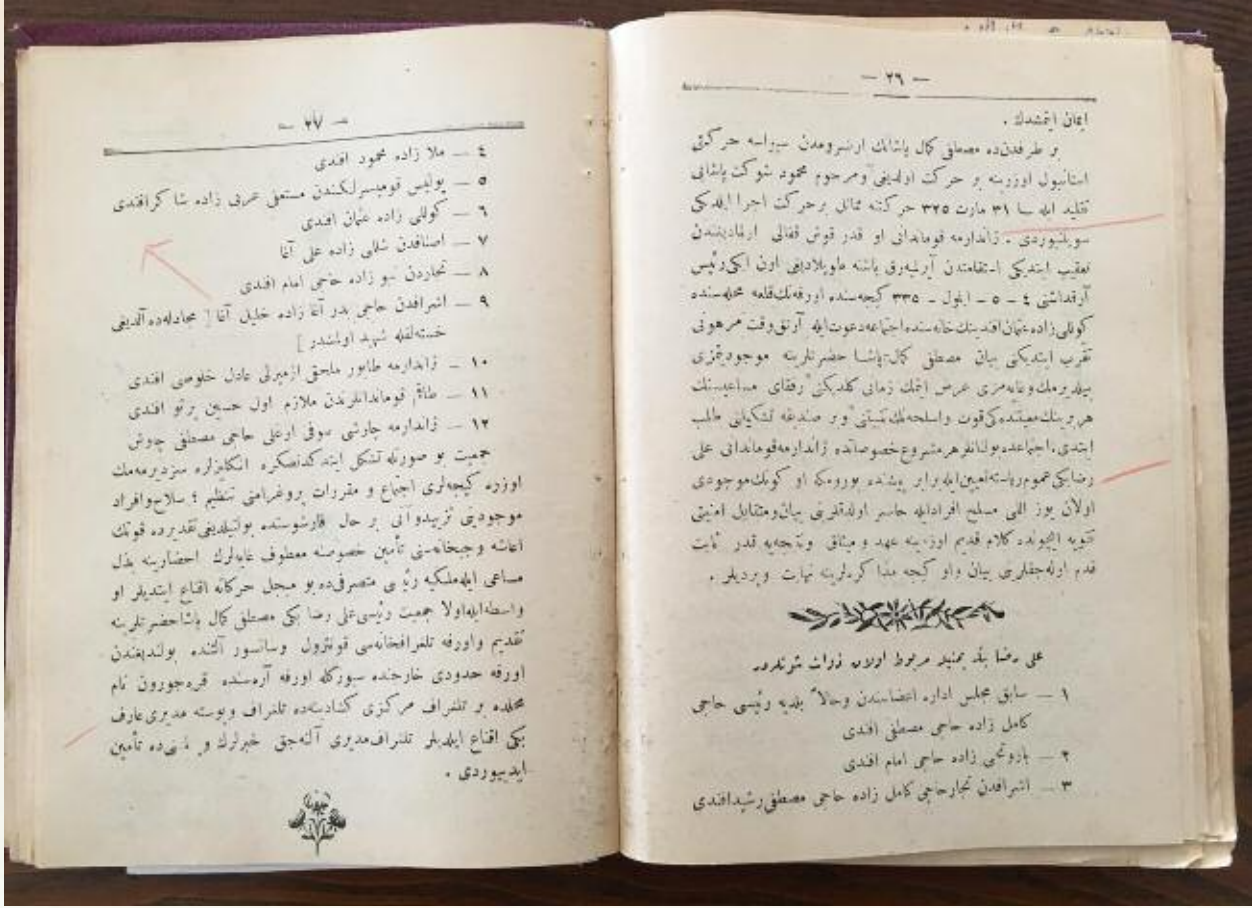 — ٢٦ —
ایمان ایتمشدك .
بر طرفدن‌ده مصطفی کمال پاشانك ارضرومدن سیواسه حرکتی
استانبول اوزرینه بر حرکت اولدیغی و مرحوم محمود شوکت پاشایی
تقلید ایله ٣١ مارت ٣٢٥ حرکتنه مماثل برحرکت اجرا ایله‌جکی
سویلنیوردی . ژاندارمه قوماندانی او قدر قوش قفالی اولمادیغندن
تعقیب ایتدیکی استقامتدن آیرلمیه‌رق باشنه طوپلادیغی اون ایکی رئیس
آرقداشنی ٤ – ٥ – ایلول – ٣٣٥ کیجه‌سنده اورفه‌نك قلعه محله‌سنده
کوللی زاده عثمان افندینك خانه‌سنده اجتماعه دعوت ایله آرتق وقت مرهونی
تقرب ایتدیکنی بیان مصطفی کمال پاشا حضرتلرینه موجودیتمزی
بیلدیرمك و غایه‌مزی عرض ایتمك زمانی کلدیکنی رفقای مساعیسنك
هر برینك معیتنده‌کی قوت و اسلحه‌نك نسبتنی و بر صندیغه تشکیلنی طلب
ایتدی، اجتماعده بولنانلر هر مشروع خصوصاتده ژاندارمه قوماندانی علی
رضا بکی عموم ریاسته تعیین ایله برابر پیشنده یورومکه او کونك موجودی
اولان یوز اللی مسلح افراد ایله حاضر اولدقلرینی بیان و متقابل امنیتی
تقویه ایچونده کلام قدیم اوزرینه عهد و میثاق و نتیجه‌یه قدر ثابت
قدم اوله‌جقلرینی بیان و او کیجه مذاکره‌لرینه نهایت ویردیلر .
علی رضا بك یمیننه مربوط اولان ذوات شونلردر
١ — سابق مجلس اداره اعضاسندن وحالاً بلدیه رئیسی حاجی
کامل زاده حاجی مصطفی افندی
٢ — بارودجی زاده حاجی امام افندی
٣ — اشرافدن تجار حاجی کامل زاده حاجی مصطفی رشید افندی
— ٢٧ —
٤ — ملا زاده محمود افندی
٥ — پولیس قومیسرلکندن مستعفی عربی زاده شاکر افندی
٦ — کوللی زاده عثمان افندی
٧ — اصنافدن شللی زاده علی آغا
٨ — تجاردن نبو زاده حاجی امام افندی
٩ — اشرافدن حاجی بدر آغا زاده خلیل آغا [ مجادله‌ده آلدیغی
خسته‌لقله شهید اولمشدر ]
١٠ — ژاندارمه طابور ملحقی ازمیرلی عادل خلوصی افندی
١١ — طاقم قوماندانلرندن ملازم اول حسین پرتو افندی
١٢ — ژاندارمه چارشی سوقی اورعلی حاجی مصطفی چاوش
جمعیت بو صورتله تشکل ایتدکدنصکره انکلیزلره سزدیرمه‌مك
اوزره کیجه‌لری اجتماع و مقررات پروغرامنی تنظیم ؛ سلاح وافراد
موجودینی تزیید و آنی بر حال قارشوسنده بولنیلدیغی تقدیرده قوتك
اعاشه و جبخانه‌سنی تأمین خصوصنه معطوف غایه‌لرك احضارینه بذل
مساعی ایله ملکیه رئیسی متصرفی‌ده بو مبجل حرکاته اقناع ایتدیلر او
واسطه ایله اولا جمعیت رئیسی علی رضا بکی مصطفی کمال پاشا حضرتلرینه
تقدیم و اورفه تلغرافخانه‌سی قونترول و سانسور آلتنده بولندیغندن
اورفه حدودی خارجنده سیورکله اورفه آره‌سنده قره‌جورون نام
محلده بر تلغراف مرکزی کشادیله‌ده تلغراف و پوسته مدیری عارف
بکی اقناع ایلدیلر تلغراف مدیری آلنه‌جق خبرلرك و نی‌ده تأمین
ایدییوردی .